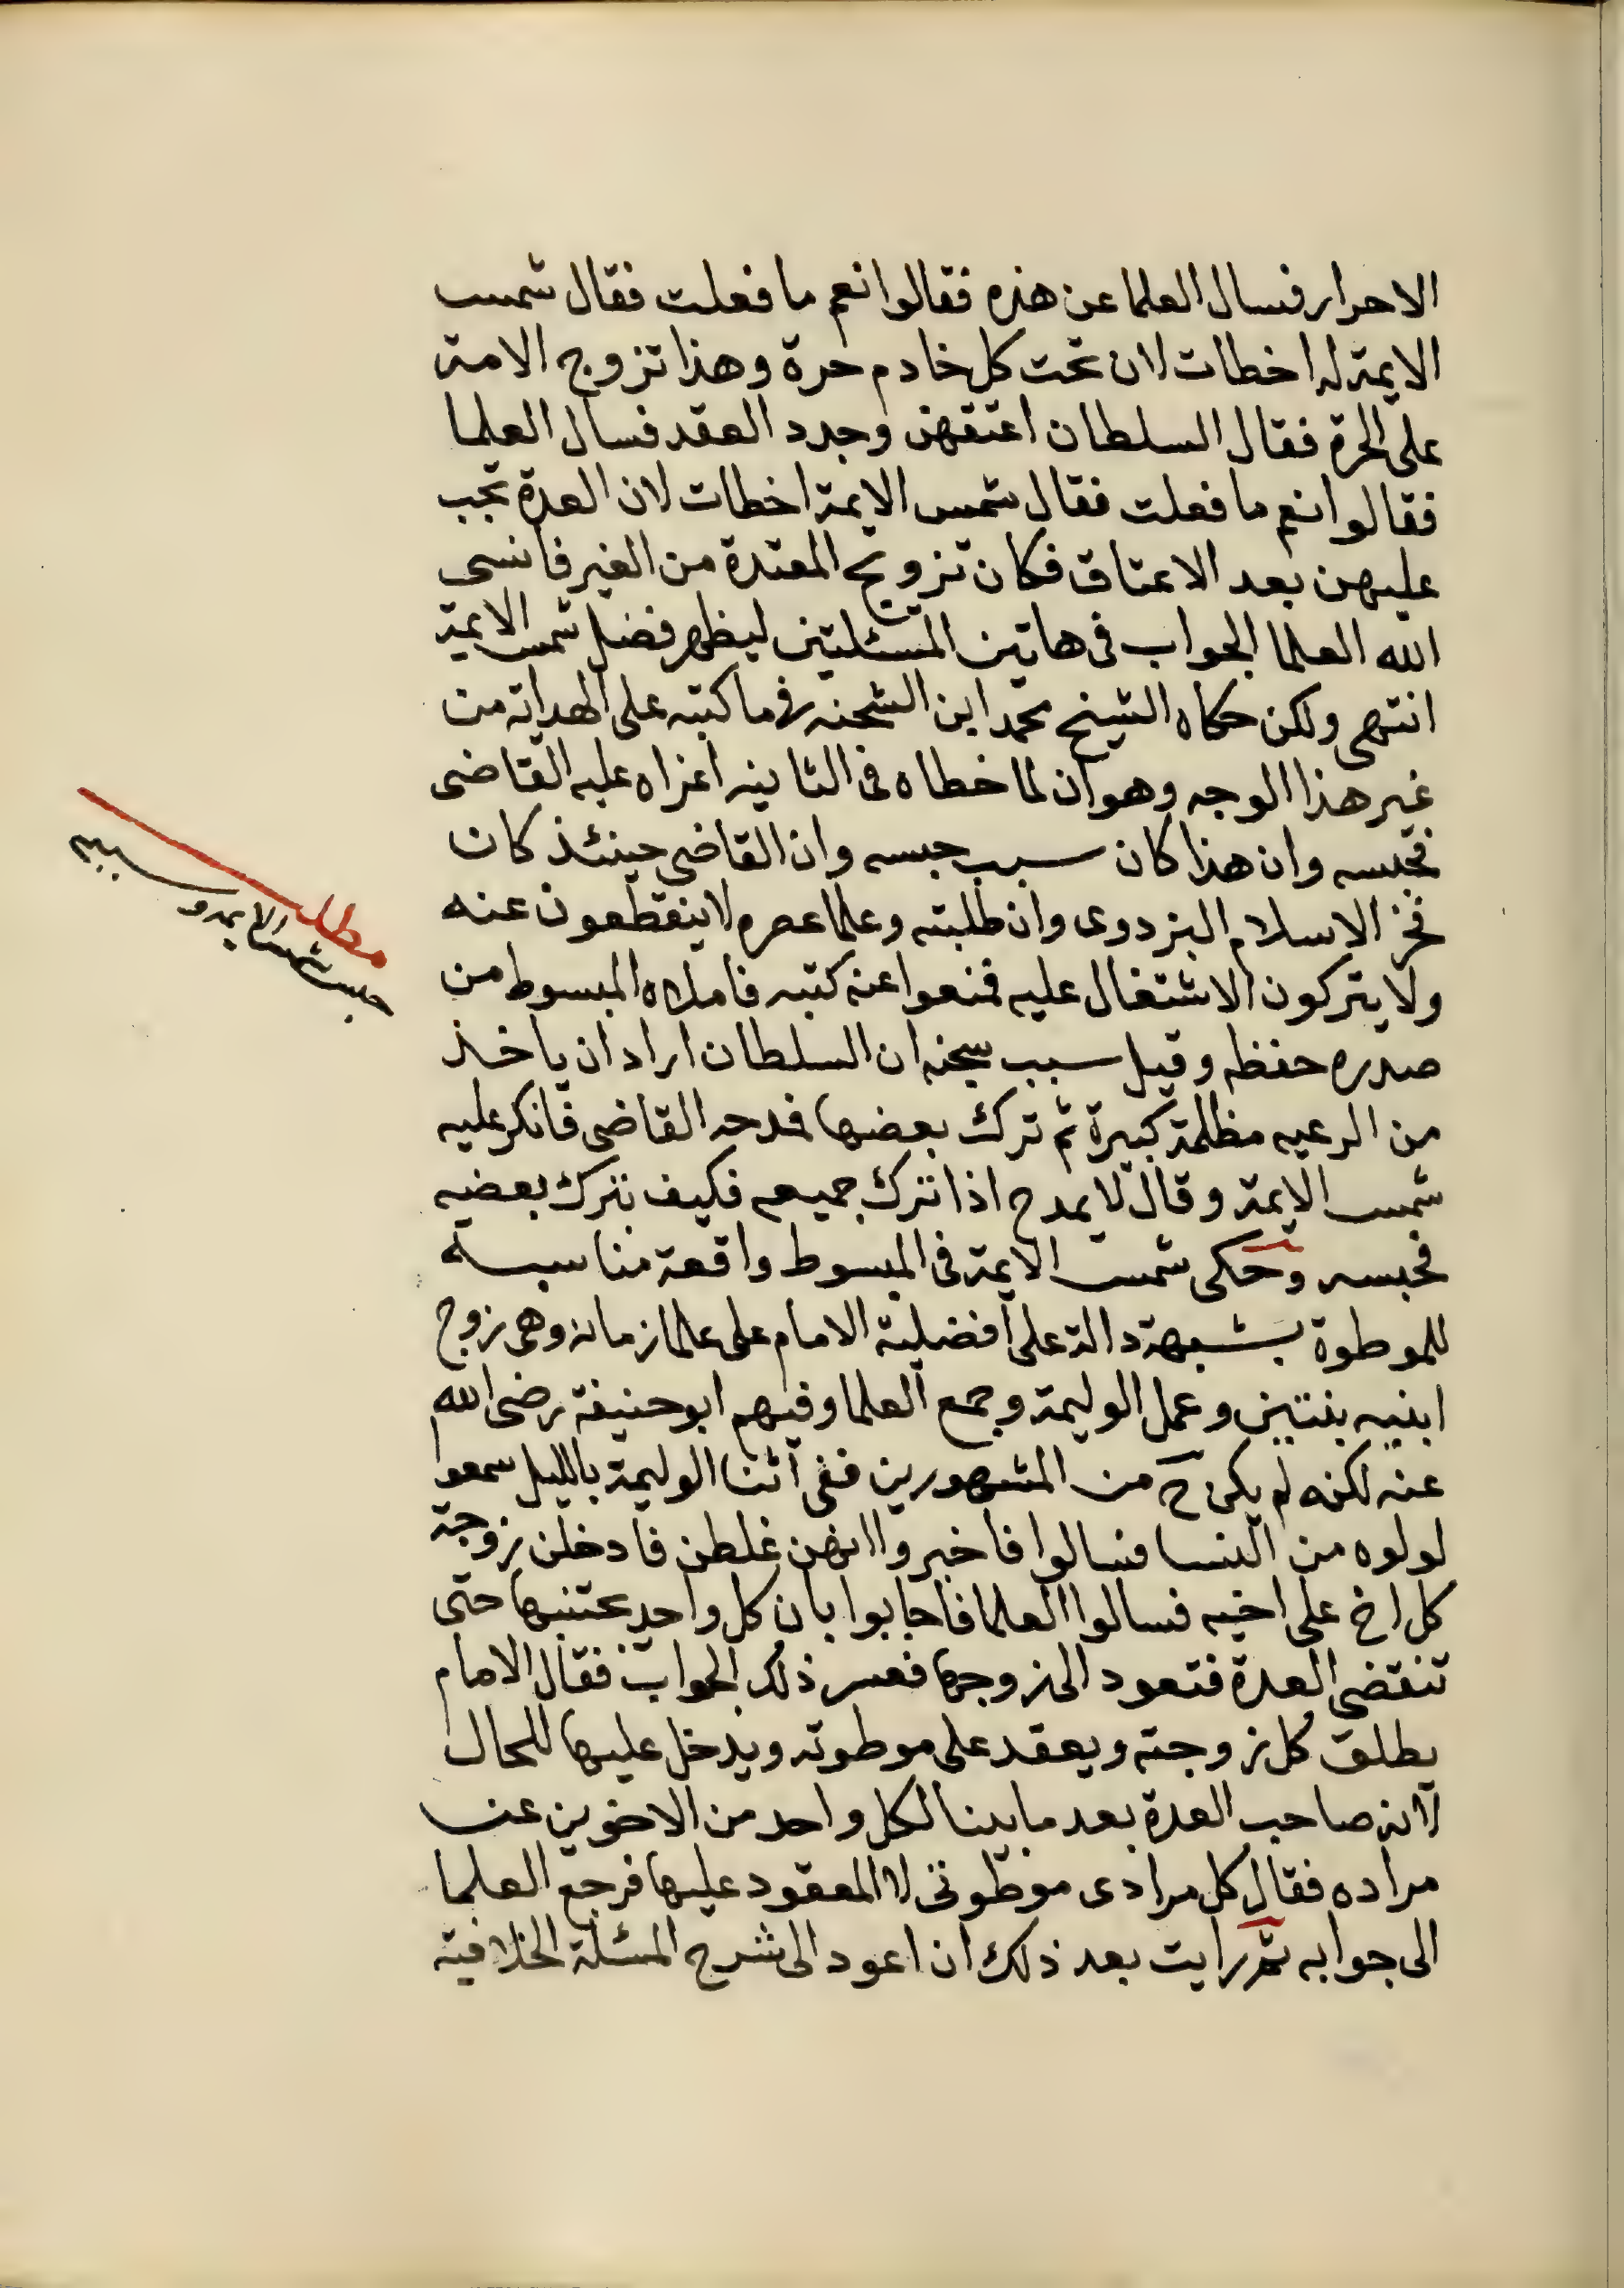 الاحرار فسال العلما عن هذه فقالوا نعم ما فعلت فقال شمس
الايمة له اخطات لان تحت كل خادم حرة وهذا تزوج الامة
على الحرة فقال السلطان اعتقهن وجدد العقد فسال العلما
فقالوا نعم ما فعلت فقال شمس الايمة اخطات لان العدة تجب
عليهن بعد الاعتاق فكان تزويج المعتدة من الغير فانسى
الله العلما الجواب فى هاتين المسئلتين ليظهر فضل شمس الايمة
انتهى ولكن حكاه الشيخ محمد ابن الشحنه فيما كتبه على الهداية من
غير هذا الوجه وهو ان لما خطاه فى الثانيه اغراه عليه القاضى
فحبسه وان هذا كان سبب حبسه وان القاضى حينئذ كان
فخر الاسلام البزدوى وان طلبته وعلما عصره لا ينقطعون عنه
ولا يتركون الاشتغال عليه فمنعوا عنه كتبه فاملاه المبسوط من
صدره حفظه وقيل سبب سجنه ان السلطان اراد ان ياخذ
من الرعيه مظلمة كبيرة ثم ترك بعضها فمدحه القاضى فانكر عليه
شمس الايمة وقال لا يمدح اذا نترك جميعه فكيف بترك بعضه
فحبسه وحكى شمس الايمة فى المبسوط واقعة مناسبة
للموطوة بشبهة دالة على افضلية الامام على علما زمانه وهى زوج
ابنيه بنتين وعمل الوليمة وجمع العلما وفيهم ابو حنيفة رضى الله
عنه لكنه لم يكن ح من المشهورين ففى اثنا الوليمة بالليل سمعوا
لولوه من النسا فسالوا فاخبروا انهن غلطن فادخلن زوجة
كل اخ على اخيه فسالوا العلما فاجابوا بان كل واحد يجتنبها حتى
تنقضى العدة فتعود الى زوجها فعسر ذلك الجواب فقال الامام
يطلق كل زوجته ويعقد على موطوته ويدخل عليها للحال
لانه صاحب العدة بعد ما بينا لكل واحد من الاخوين عن
مراده فقال كل مرادى موطوتى لا المعقود عليها فرجع العلما
الى جوابه ثم رايت بعد ذلك ان اعود الى شرح المسئلة الخلافية
مطلب
حبس شمس الايمة و سببه